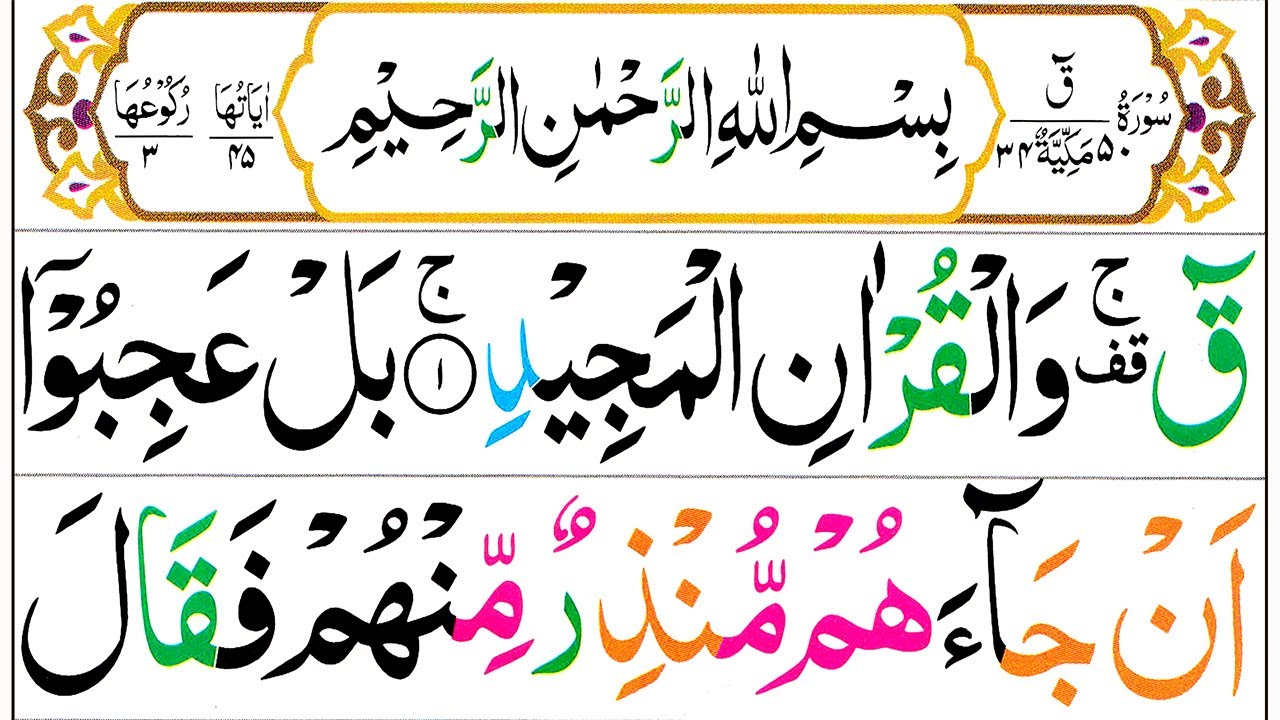 سُوْرَةُ قٓ ۵۰ مَكِّيَّةٌ ۳۴
بِسْمِ اللهِ الرَّحْمٰنِ الرَّحِيْمِ
اٰيَاتُهَا ۴۵
رُكُوْعُهَا ۳
قٓ ۚ قف وَالْقُرْاٰنِ الْمَجِيْدِ ۚ ۱ بَلْ عَجِبُوْۤا
اَنْ جَآءَهُمْ مُّنْذِرٌ مِّنْهُمْ فَقَالَ